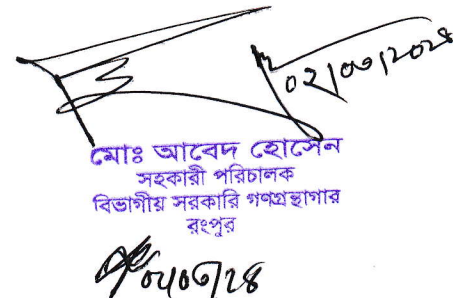 ০২|০৩|২০২৪
মোঃ আবেদ হোসেন
সহকারী পরিচালক
বিভাগীয় সরকারি গণগ্রন্থাগার
রংপুর